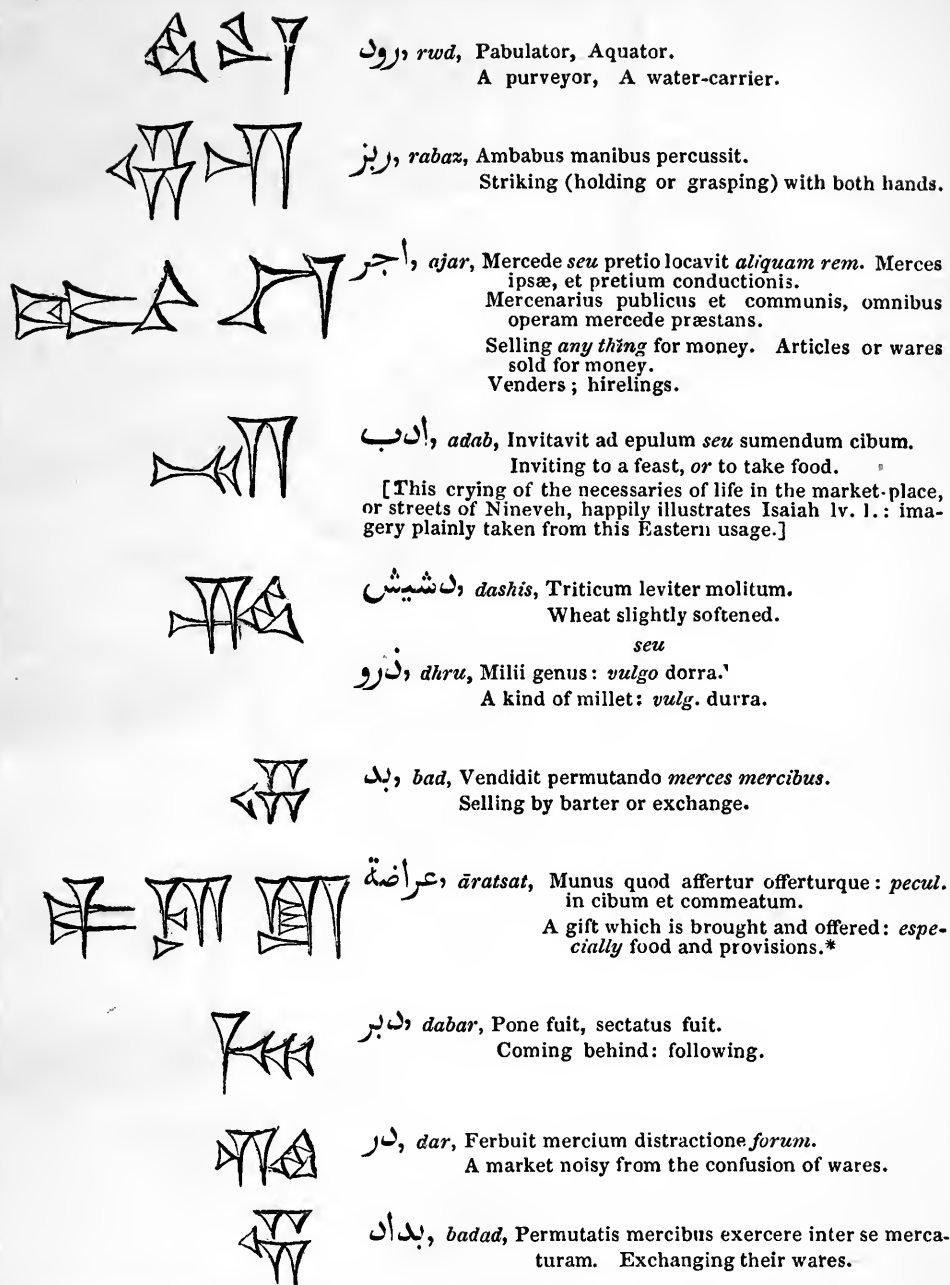 رود, rwd, Pabulator, Aquator.
A purveyor, A water-carrier.
ربز, rabaz, Ambabus manibus percussit.
Striking (holding or grasping) with both hands.
اجر, ajar, Mercede seu pretio locavit aliquam rem. Merces
ipsæ, et pretium conductionis.
Mercenarius publicus et communis, omnibus
operam mercede præstans.
Selling any thing for money. Articles or wares
sold for money.
Venders; hirelings.
ادب, adab, Invitavit ad epulum seu sumendum cibum.
Inviting to a feast, or to take food.
[This crying of the necessaries of life in the market-place,
or streets of Nineveh, happily illustrates Isaiah lv. 1.: ima-
gery plainly taken from this Eastern usage.]
دشيش, dashis, Triticum leviter molitum.
Wheat slightly softened.
seu
ذرو, dhru, Milii genus: vulgo dorra.'
A kind of millet: vulg. durra.
بد, bad, Vendidit permutando merces mercibus.
Selling by barter or exchange.
عراضة, āratsat, Munus quod affertur offerturque: pecul.
in cibum et commeatum.
A gift which is brought and offered: espe-
cially food and provisions.*
دبر, dabar, Pone fuit, sectatus fuit.
Coming behind: following.
در, dar, Ferbuit mercium distractione forum.
A market noisy from the confusion of wares.
بداد, badad, Permutatis mercibus exercere inter se merca-
turam. Exchanging their wares.